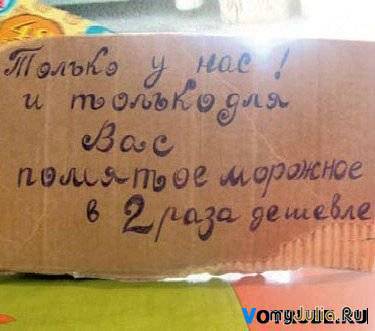 Только у нас!
и только для
Вас
помятое морожное
в 2 раза дешевле
myJulia.Ru